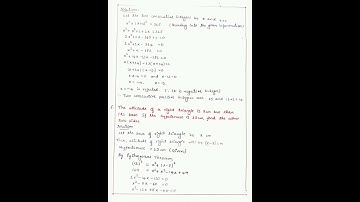 Solution:
Let the two consecutive integers be x and x+1
x²+(x+1)² = 365 (According to the given information)
x²+x²+1+2x = 365
2x²+2x-364 = 0
x²+x-182 = 0
x²+14x-13x-182=0
x(x+14)-13(x+14)=0
(x+14)(x-13)=0
x+14=0 and x-13=0
x=-14 x=13
x=-14 is rejected it is negative integer
Two consecutive positive integers are 13 and 13+1=14
5. The altitude of a right triangle is 7 cm less than
its base. If the hypotenuse is 13 cm, find the other
two sides.
Solution
Let the base of right triangle be x cm
Then, altitude of right triangle will be (x-7) cm
Hypotenuse = 13 cm (Given)
By Pythagoras Theorem
(13)² = x²+(x-7)²
169 = x²+x²-14x+49
2x²-14x-120=0
x²-7x-60=0
x²-12x+5x-60=0